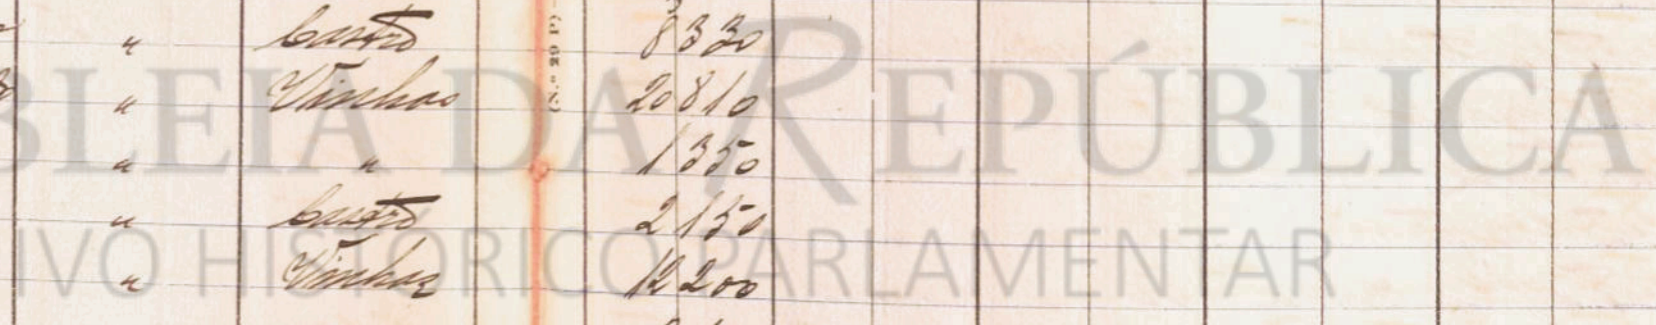 " Castro 8 330
" Vinhas 20 810
" " 1 350
" Castro 2 150
" Vinhas 12 200
(N.º 29 P)
BLEIA DA REPÚBLICA
IVO HISTÓRICO PARLAMENTAR